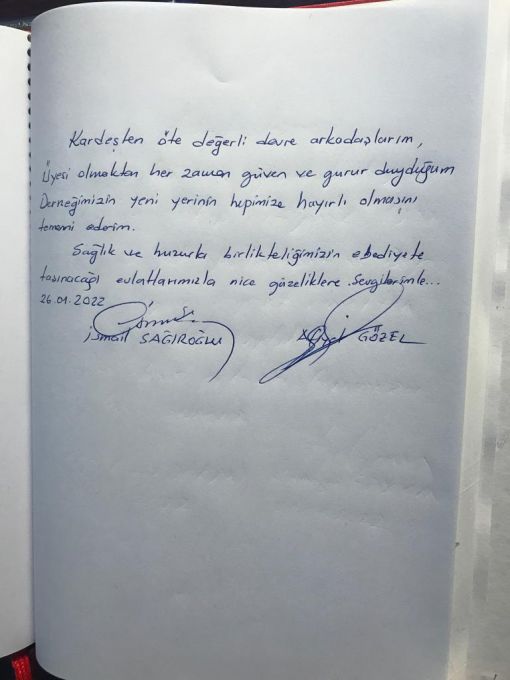 Kardeşten öte değerli devre arkadaşlarım,
Üyesi olmaktan her zaman güven ve gurur duyduğum
Derneğimizin yeni yerinin hepimize hayırlı olmasını
temenni ederim.
Sağlık ve huzurla birlikteliğimizin ebediyete
taşınacağı evlatlarımızla nice güzeliklere. Sevgilerimle...
26.01.2022
İsmail SAĞIROĞLU GÖZEL